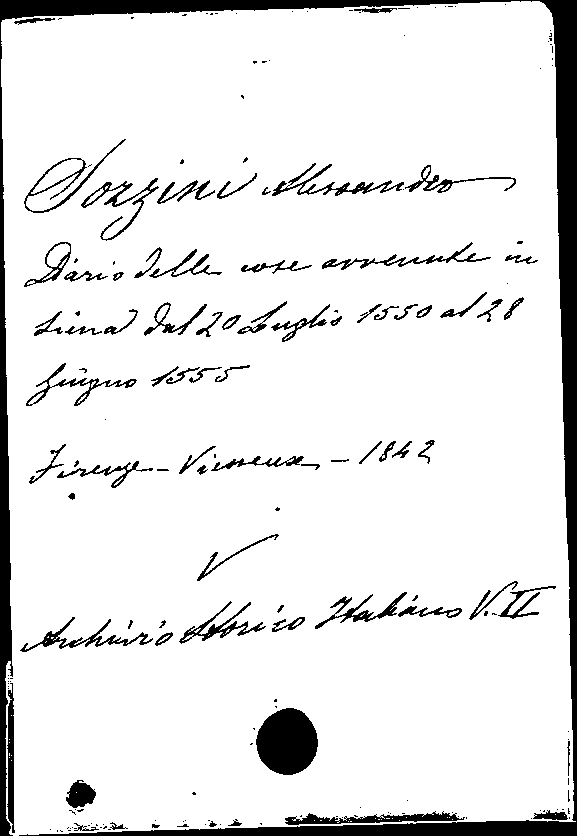 Sozzini Alessandro
Diario delle cose avvenute in
Siena dal 20 Luglio 1550 al 28
Giugno 1555
Firenze - Vieusseux - 1842
V
Archivio Storico Italiano V. II